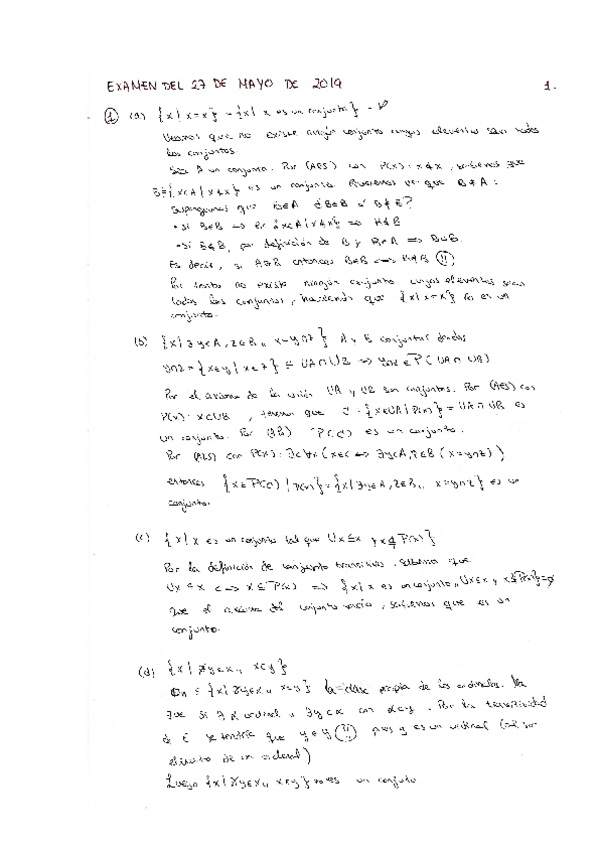 EXAMEN DEL 27 DE MAYO DE 2019 1.
① (a) {x | x=x} = {x | x es un conjunto} = V
Veamos que no existe ningún conjunto cuyos elementos sean todos
los conjuntos.
Sea A un conjunto. Por (AES) con P(x): x∉x, tenemos que
B={x∈A | x∉x} es un conjunto. Queremos ver que B∉A:
Supongamos que B∈A ¿B∈B o B∉B?
• si B∈B ⇒ B∈{x∈A | x∉x} ⇒ B∉B
• si B∉B, por definición de B y B∈A ⇒ B∈B.
Es decir, si entonces B∈B ⇔ B∉B (!!)
Por tanto no existe ningún conjunto cuyos elementos sean
todos los conjuntos, haciendo que {x | x=x} no es un
conjunto.
(b) {x | ∃y∈A, z∈B,, x=y∩z} A y B conjuntos dados
y∩z = {x∈y | x∈z} ⊆ ∪A∩∪B ⇒ y∩z ∈ P(∪A∩∪B)
Por el axioma de la unión ∪A y ∪B son conjuntos. Por (AES) con
P(x): x∈∪B, tenemos que C = {x∈∪A | P(x)} = ∪A∩∪B es
un conjunto. Por P(C) es un conjunto.
Por (AES) con P(x): ∃c∀x (x∈c ⇔ ∃y∈A, z∈B (x=y∩z))
entonces {x∈P(C) | P(x)} = {x | ∃y∈A, z∈B,, x=y∩z} es un
conjunto.
(c) {x | x es un conjunto tal que ∪x⊆x y x⊈P(x)}
Por la definición de conjunto transitivo, sabemos que
∪x⊆x ⇔ x⊆P(x) ⇒ {x | x es un conjunto,, ∪x⊆x y x⊈P(x)}=∅
Que el axioma del conjunto vacío, sabemos que es un
conjunto.
(d) {x | ∄y∈x,, x∈y}
On ⊆ {x | ∄y∈x,, x∈y} la clase propia de los ordinales. Ya
que si ∃ α ordinal ,, ∃y∈α con α∈y. Por la transitividad
de ∈ se tendría que y∈y (!!) pues y es un ordinal (al ser
elemento de un ordinal)
Luego {x | ∄y∈x,, x∈y} no es un conjunto